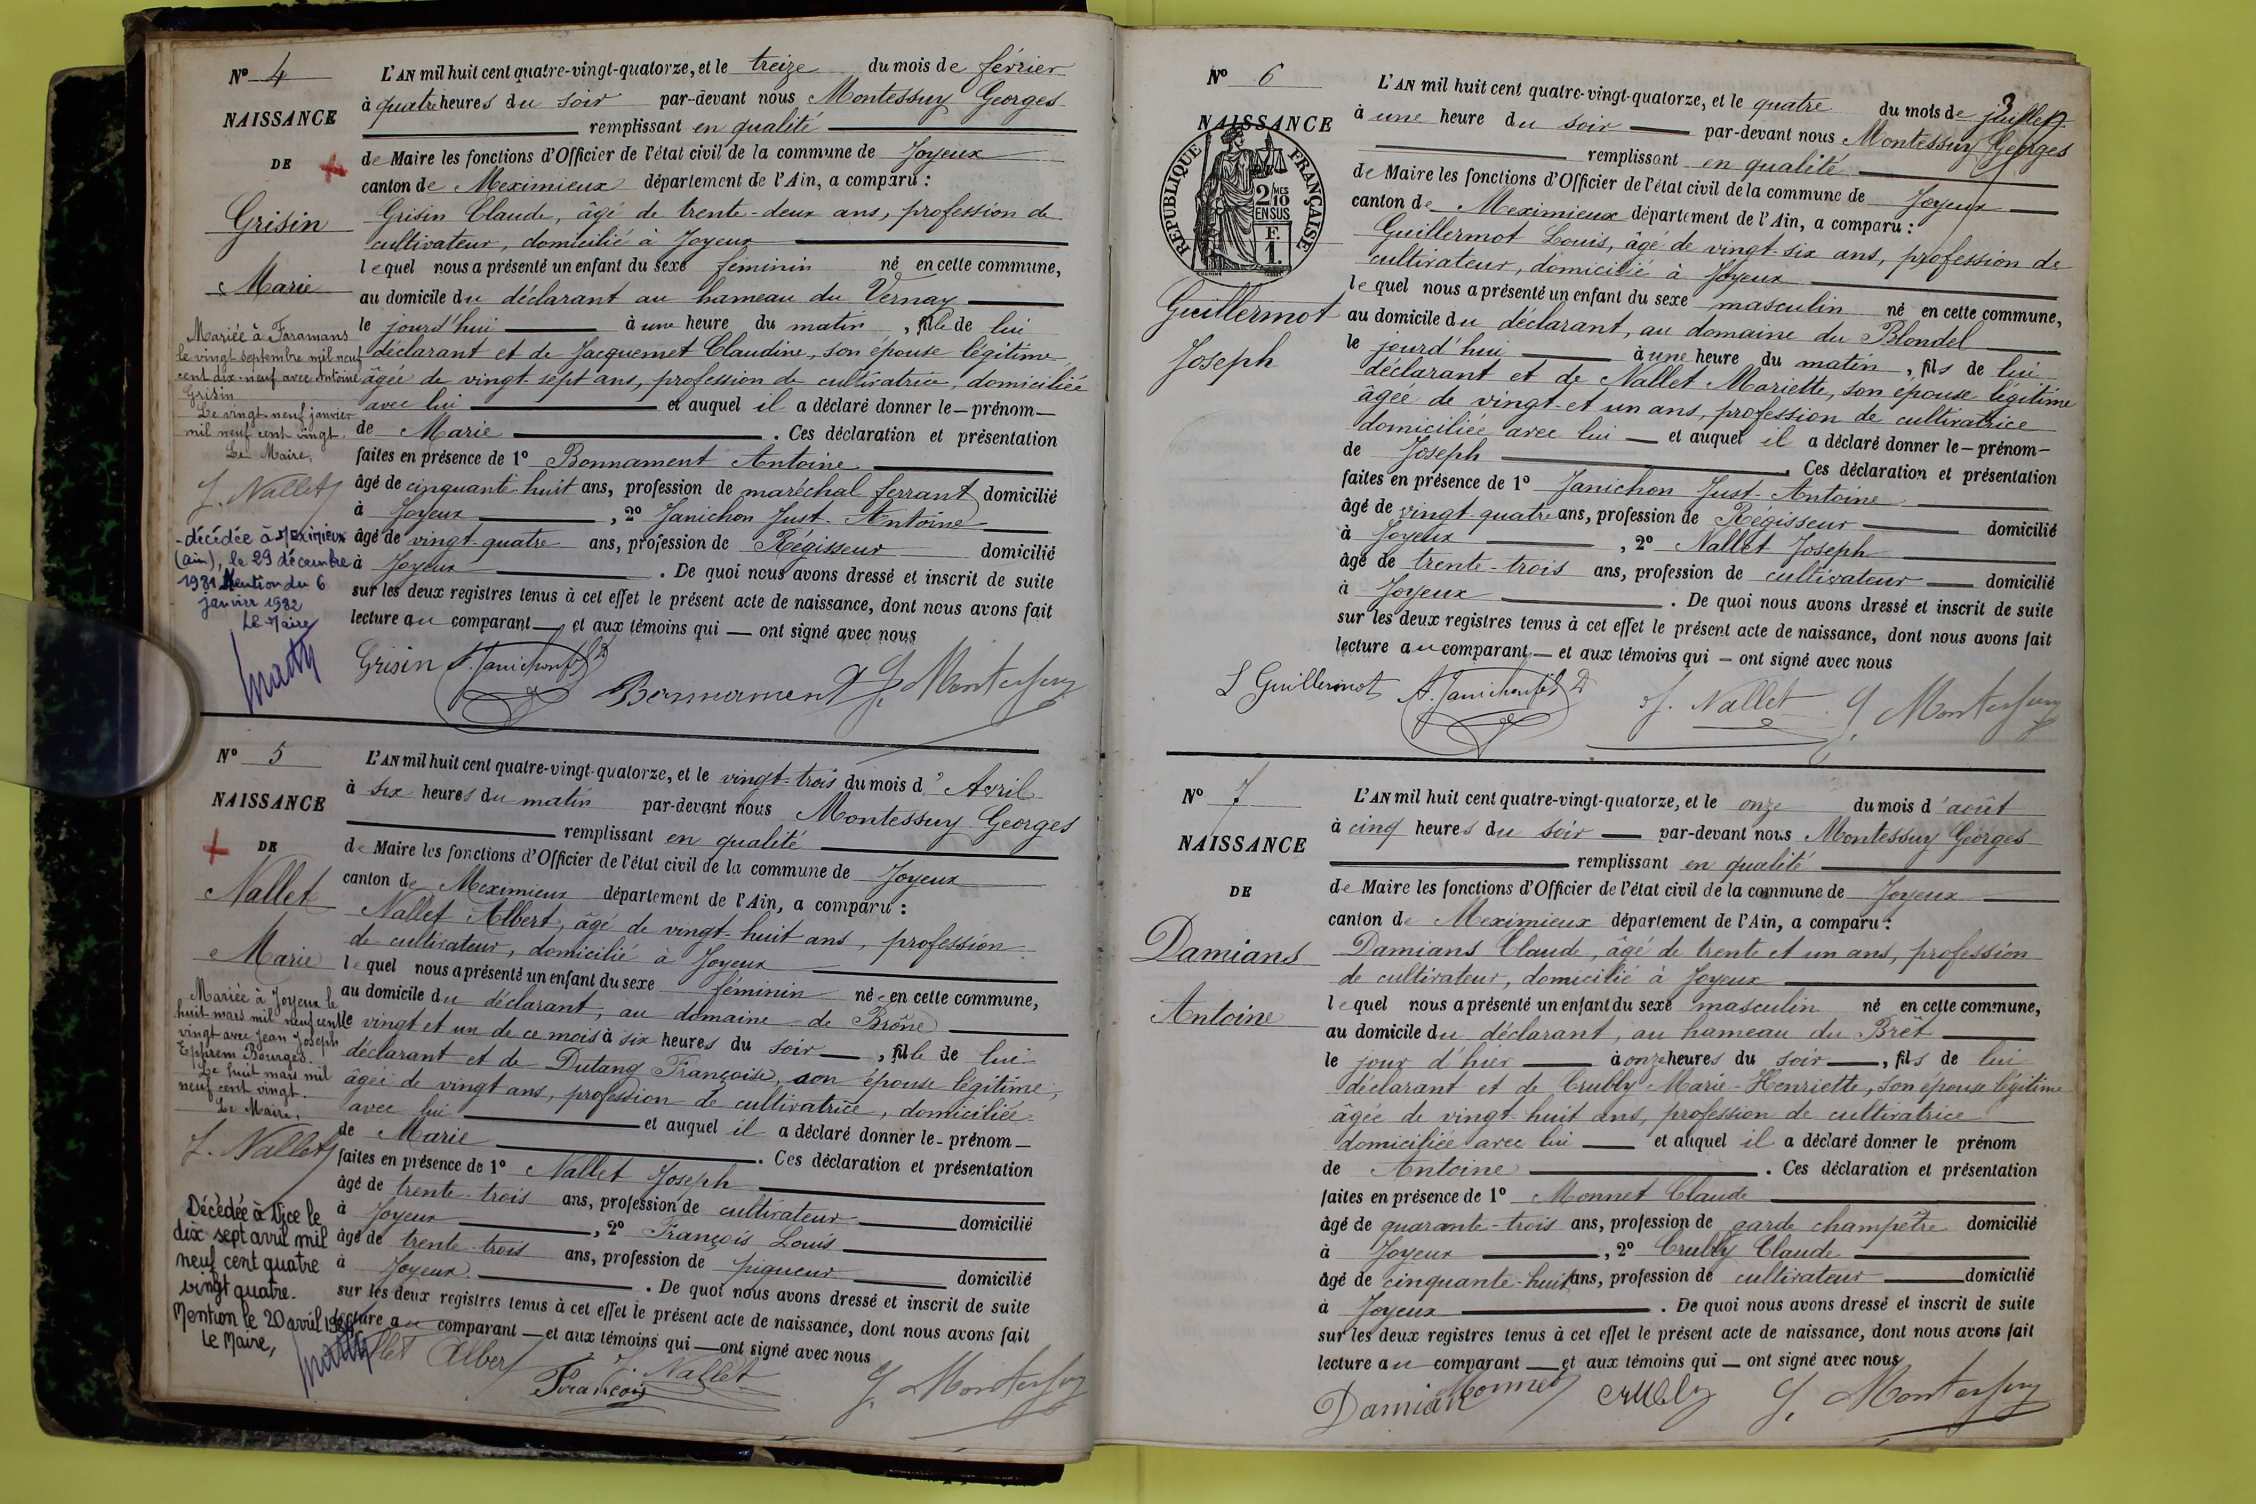 Nº 4
NAISSANCE
DE
Grisin
Marie
Mariée à Faramans
le vingt septembre mil neuf
cent dix-neuf avec Antoine
Grisin
Le vingt-neuf janvier
mil neuf cent vingt.
Le Maire,
J. Nallet
- décédée à Meximieux
(ain), le 29 décembre
1981 Mention du 6
janvier 1982
Le Maire
L'AN mil huit cent quatre-vingt-quatorze, et le treize du mois de février
à quatre heures du soir par-devant nous Montessuy Georges
remplissant en qualité
de Maire les fonctions d'Officier de l'état civil de la commune de Joyeux
canton de Meximieux département de l'Ain, a comparu :
Grisin Claude, âgé de trente-deux ans, profession de
cultivateur, domicilié à Joyeux
lequel nous a présenté un enfant du sexe féminin né en cette commune,
au domicile du déclarant au hameau du Vernay
le jourd'hui à une heure du matin, fille de lui
déclarant et de Jacquemet Claudine, son épouse légitime
âgée de vingt-sept ans, profession de cultivatrice, domiciliée
avec lui et auquel il a déclaré donner le prénom
de Marie. Ces déclaration et présentation
faites en présence de 1º Bonnament Antoine
âgé de cinquante huit ans, profession de maréchal ferrant domicilié
à Joyeux, 2º Janichon Just-Antoine
âgé de vingt-quatre ans, profession de Régisseur domicilié
à Joyeux. De quoi nous avons dressé et inscrit de suite
sur les deux registres tenus à cet effet le présent acte de naissance, dont nous avons fait
lecture au comparant et aux témoins qui ont signé avec nous
Grisin A. Janichon fils Bonnament G. Montessuy
Nº 5
NAISSANCE
DE
Nallet
Marie
Mariée à Joyeux le
huit mars mil neuf cent
vingt avec Jean Joseph
Ephrem Bourges.
Le huit mars mil
neuf cent vingt.
Le Maire,
J. Nallet
Décédée à Nice le
dix sept avril mil
neuf cent quatre
vingt quatre.
Mention le 20 avril 1984
Le Maire,
L'AN mil huit cent quatre-vingt-quatorze, et le vingt-trois du mois d'Avril
à six heures du matin par-devant nous Montessuy Georges
remplissant en qualité
de Maire les fonctions d'Officier de l'état civil de la commune de Joyeux
canton de Meximieux département de l'Ain, a comparu :
Nallet Albert, âgé de vingt-huit ans, profession
de cultivateur, domicilié à Joyeux
lequel nous a présenté un enfant du sexe féminin née en cette commune,
au domicile du déclarant, au domaine de Brône
le vingt et un de ce mois à six heures du soir, fille de lui
déclarant et de Dutang Françoise, son épouse légitime,
âgée de vingt ans, profession de cultivatrice, domiciliée
avec lui et auquel il a déclaré donner le prénom
de Marie. Ces déclaration et présentation
faites en présence de 1º Nallet Joseph
âgé de trente-trois ans, profession de cultivateur domicilié
à Joyeux, 2º François Louis
âgé de trente-trois ans, profession de piqueur domicilié
à Joyeux. De quoi nous avons dressé et inscrit de suite
sur les deux registres tenus à cet effet le présent acte de naissance, dont nous avons fait
lecture au comparant et aux témoins qui ont signé avec nous
Nallet Albert François J. Nallet G. Montessuy
3
Nº 6
NAISSANCE
RÉPUBLIQUE FRANÇAISE
2/10 MES
EN SUS
F.
1.
Guillermot
Joseph
L'AN mil huit cent quatre-vingt-quatorze, et le quatre du mois de juillet
à une heure du soir par-devant nous Montessuy Georges
remplissant en qualité
de Maire les fonctions d'Officier de l'état civil de la commune de Joyeux
canton de Meximieux département de l'Ain, a comparu :
Guillermot Louis, âgé de vingt-six ans, profession de
cultivateur, domicilié à Joyeux
lequel nous a présenté un enfant du sexe masculin né en cette commune,
au domicile du déclarant, au domaine du Blondel
le jourd'hui à une heure du matin, fils de lui
déclarant et de Nallet Mariette, son épouse légitime
âgée de vingt-et un ans, profession de cultivatrice
domiciliée avec lui et auquel il a déclaré donner le prénom
de Joseph. Ces déclaration et présentation
faites en présence de 1º Janichon Just-Antoine
âgé de vingt-quatre ans, profession de Régisseur domicilié
à Joyeux, 2º Nallet Joseph
âgé de trente-trois ans, profession de cultivateur domicilié
à Joyeux. De quoi nous avons dressé et inscrit de suite
sur les deux registres tenus à cet effet le présent acte de naissance, dont nous avons fait
lecture au comparant et aux témoins qui ont signé avec nous
L Guillermot A. Janichon fils J. Nallet G. Montessuy
Nº 7
NAISSANCE
DE
Damians
Antoine
L'AN mil huit cent quatre-vingt-quatorze, et le onze du mois d'août
à cinq heures du soir par-devant nous Montessuy Georges
remplissant en qualité
de Maire les fonctions d'Officier de l'état civil de la commune de Joyeux
canton de Meximieux département de l'Ain, a comparu :
Damians Claude, âgé de trente et un ans, profession
de cultivateur, domicilié à Joyeux
lequel nous a présenté un enfant du sexe masculin né en cette commune,
au domicile du déclarant, au hameau du Brêt
le jour d'hier à onze heures du soir, fils de lui
déclarant et de Crubly Marie-Henriette, son épouse légitime
âgée de vingt-huit ans, profession de cultivatrice
domiciliée avec lui et auquel il a déclaré donner le prénom
de Antoine. Ces déclaration et présentation
faites en présence de 1º Monnet Claude
âgé de quarante-trois ans, profession de garde champêtre domicilié
à Joyeux, 2º Crubly Claude
âgé de cinquante-huit ans, profession de cultivateur domicilié
à Joyeux. De quoi nous avons dressé et inscrit de suite
sur les deux registres tenus à cet effet le présent acte de naissance, dont nous avons fait
lecture au comparant et aux témoins qui ont signé avec nous
Damian Monnet Crubly G. Montessuy